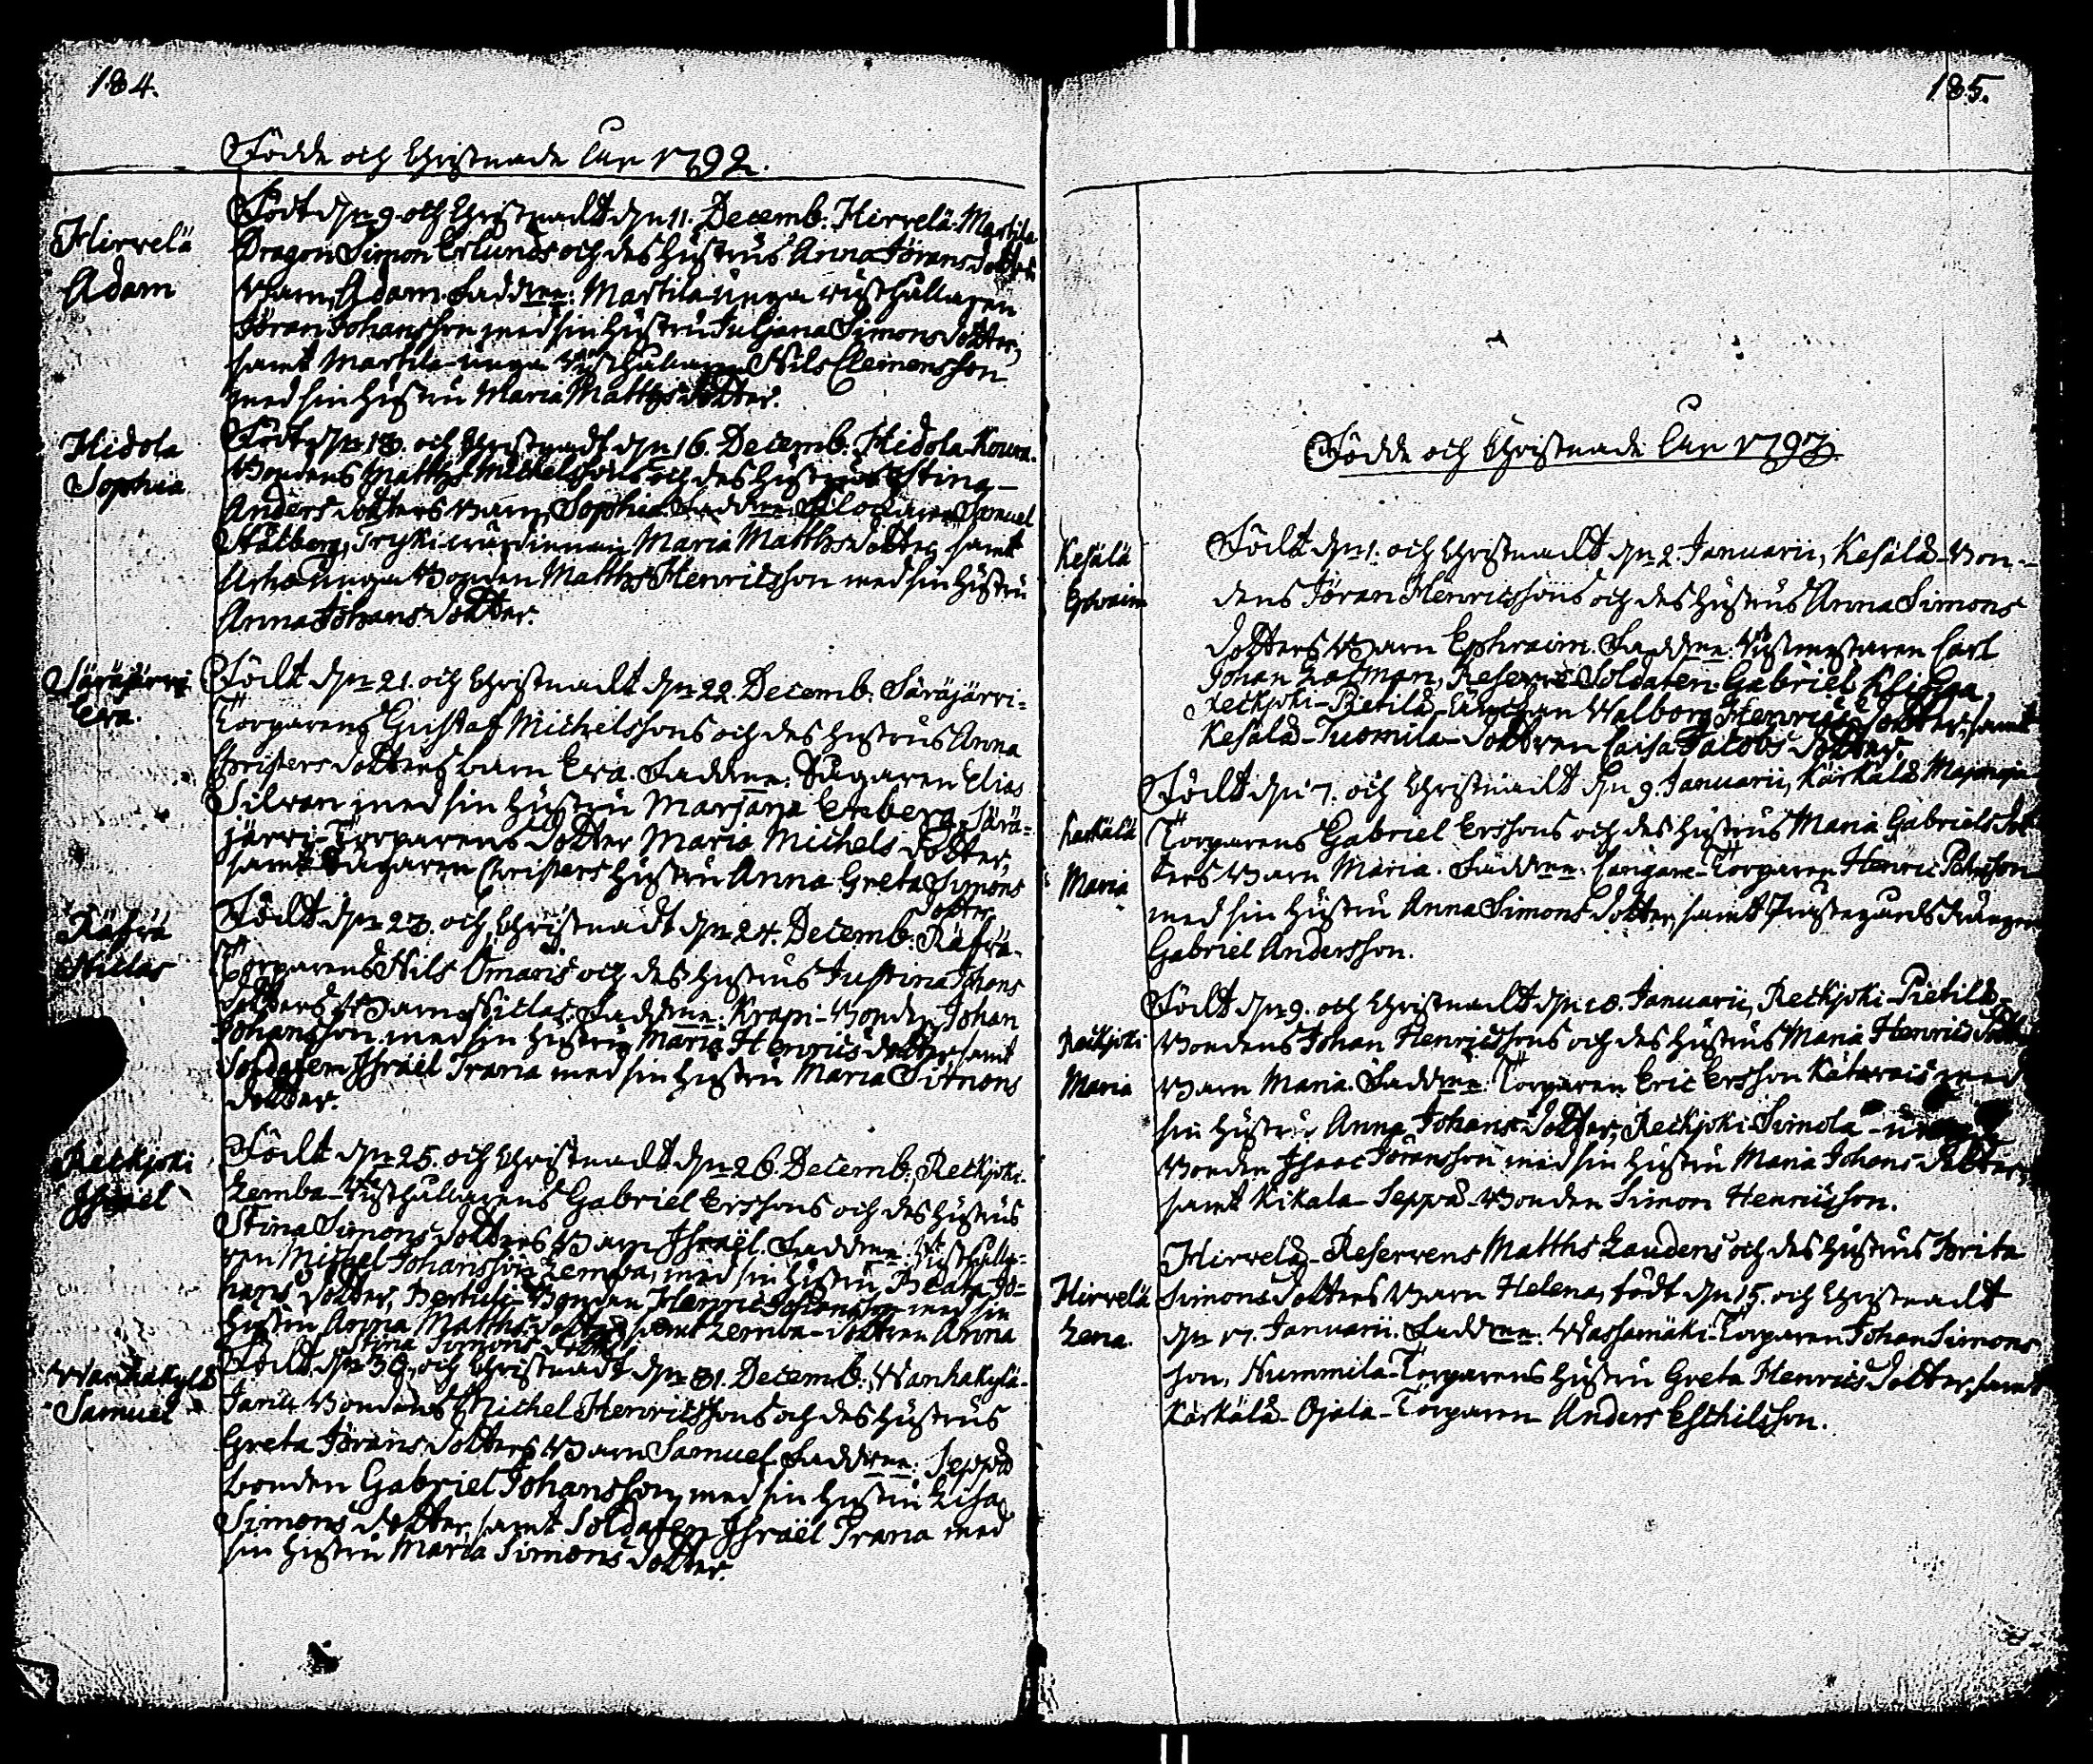 184.
Födde och Christnade Åhr 1792.
Hirvelä
Adam
Födt d̅n 9. och Christnadt d̅n 11. Decemb. Hirvelä-Martila
Dragon Simon Erlunds och des hustrus Anna Jörans dotters
Barn, Adam. Faddrne: Martila unga rusthållaren
Jöran Johansson med sin hustru Juljana Simons dotter,
samt Martila-unga Rusthållaren Nils Clemensson
med sin hustru Maria Matths dotter.
Hidola
Sophia
Födt d̅n 13. och Christnadt d̅n 16. Decemb. Hidola-Kouva.
Bondens Matths Michelssons och des hustrus Stina
Anders dotters Barn, Sophia. Faddrne: Klockaren Samuel
Stålberg, Maria Matths dotter, samt
unga Bonden Matths Henricsson med sin hustru
Anna Johans dotter.
Säräjärvi
Eva.
Födt d̅n 21. och Christnadt d̅n 22. Decemb. Säräjärvi-
Torparens Gustaf Michelssons och des hustrus Anna
Christers dotters barn Eva. Faddrne: Sågaren Elias
Silvan med sin hustru Marjana Enberg, Särä-
järvi-Torparens dotter Maria Michels dotter,
samt Sågaren Christers hustru Anna Greta Simons
dotter.
Räfvä
Niclas
Födt d̅n 23. och Christnadt d̅n 24. Decemb. Räfvä-
Torparens Nils Omaris och des hustrus Justina Johans
dotters Barn Niclas. Faddrne: Krapi-Bonden Johan
Johansson med sin hustru Maria Henrics dotter, samt
Soldaten Jsraël Trana med sin hustru Maria Simons
dotter.
Reckjoki
Jsraël
Födt d̅n 25. och Christnadt d̅n 26. Decemb. Reckjoki-
Lemba-Rusthållarens Gabriel Erssons och des hustrus
Stina Simons dotters Barn Jsraël. Faddrne: Rusthålla-
ren Michel Johansson Lemba, med sin hustru Beata Jo-
hans dotter, Bertula-Bonden Henric Johansson med sin
hustru Anna Matths dotter, samt Lemba-dottren Anna
Stina Simons dotter.
Wanhakylä
Samuel
Födt d̅n 30. och Christnadt d̅n 31. Decemb. Wanhakylä-
Janu Bondens Michel Henricssons och des hustrus
Greta Jörans dotters Barn Samuel. Faddrne: Seppä
bonden Gabriel Johansson, med sin hustru Lisa
Simons dotter, samt Soldaten Jsraël Trana med
sin hustru Maria Simons dotter.
185.
Födde och Christnade Åhr 1793.
Kesälä
Ephraim
Födt d̅n 1. och Christnadt d̅n 2. Januarii, Kesälä-Bon-
dens Jöran Henricssons och des hustrus Anna Simons
dotters Barn Ephraim. Faddrne: Rustmestaren Carl
Johan Zatman, Reserve Soldaten Gabriel
Reckjoki-Pietilä-Änckan Walborg Henrics dotter, samt
Kesälä-Tuomila-dottren Caisa Jacobs dotter.
Karkälä
Maria
Födt d̅n 7. och Christnadt d̅n 9. Januarii, Kärkälä
Torparens Gabriel Erssons och des hustrus Maria Gabriels dot
ters Barn Maria. Faddrne: Torparen Henric
med sin hustru Anna Simons dotter, samt Prästegårds drängen
Gabriel Andersson.
Reckjoki
Maria
Födt d̅n 9. och Christnadt d̅n 10. Januarii, Reckjoki-Pietilä-
Bondens Johan Henricssons och des hustrus Maria Henrics dotters
Barn Maria. Faddrne: Torparen Eric Ersson med
sin hustru Anna Johans dotter, Reckjoki-Simola-unga
Bonden Jsaac Jöransson med sin hustru Maria Johans dotter,
samt Kikala-Seppä-Bonden Simon Henricsson.
Hirvelä
Lena.
Hirvelä-Reservens Matths Laudens och des hustrus Brita
Simons dotters Barn Helena, födt d̅n 15. och Christnadt
d̅n 17. Januarii. Faddrne: Wassamäki-Torparen Johan Simons
son, Nummila-Torparens hustru Greta Henrics dotter, samt
Kärkälä-Ojala-Torparen Anders Eschilsson.